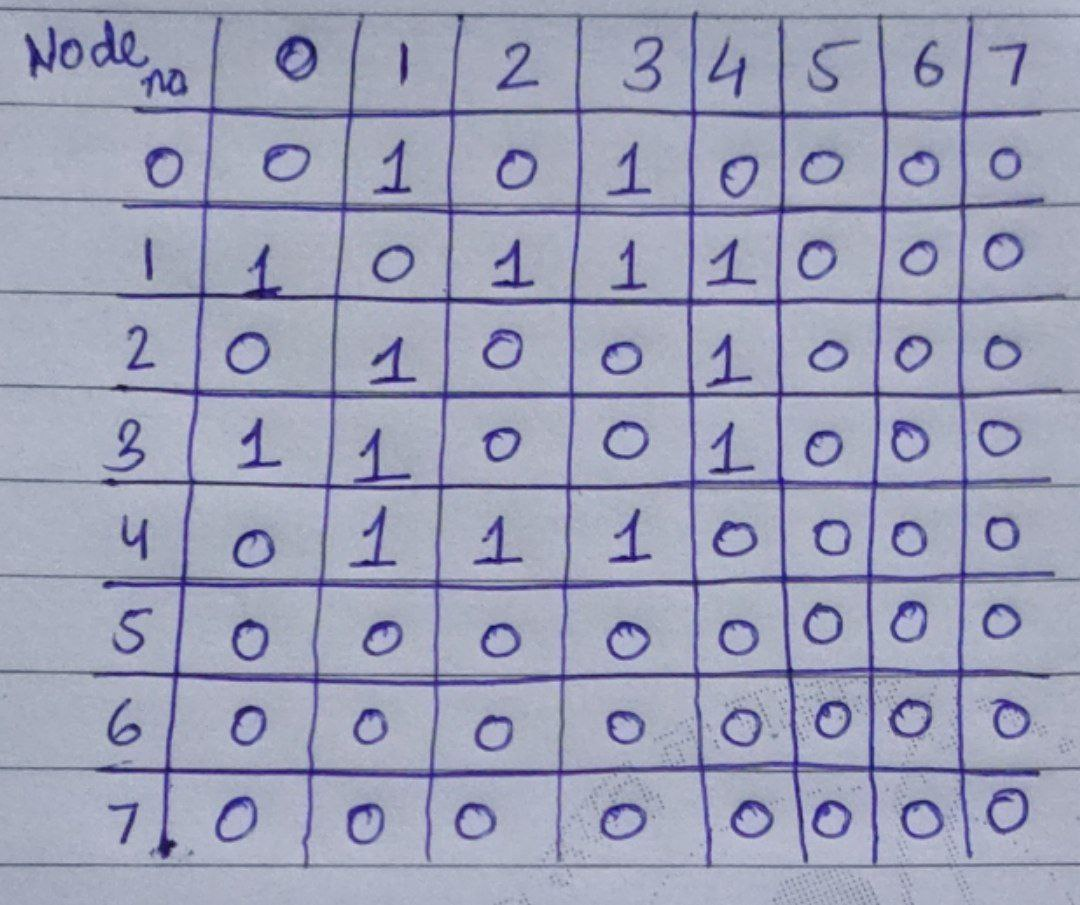 Node no 0 1 2 3 4 5 6 7
0 0 1 0 1 0 0 0 0
1 1 0 1 1 1 0 0 0
2 0 1 0 0 1 0 0 0
3 1 1 0 0 1 0 0 0
4 0 1 1 1 0 0 0 0
5 0 0 0 0 0 0 0 0
6 0 0 0 0 0 0 0 0
7 0 0 0 0 0 0 0 0